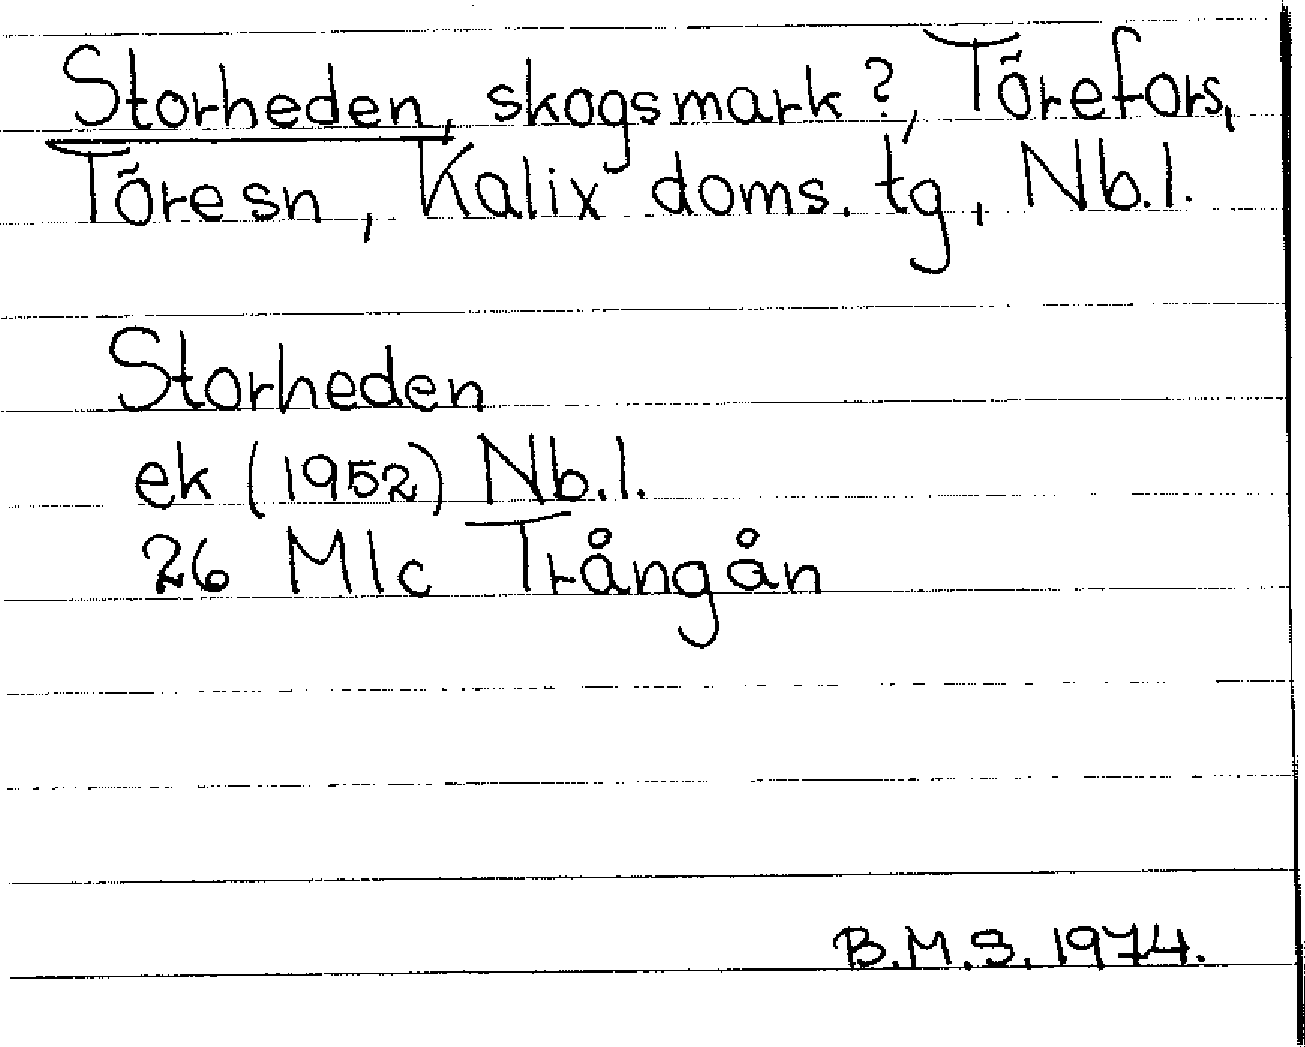 Storheden, skogsmark?, Törefors,
Töre sn, Kalix doms. tg, Nb.l.
Storheden
ek (1952) Nb.l.
26 M1c Trångån
B.M.S. 1974.